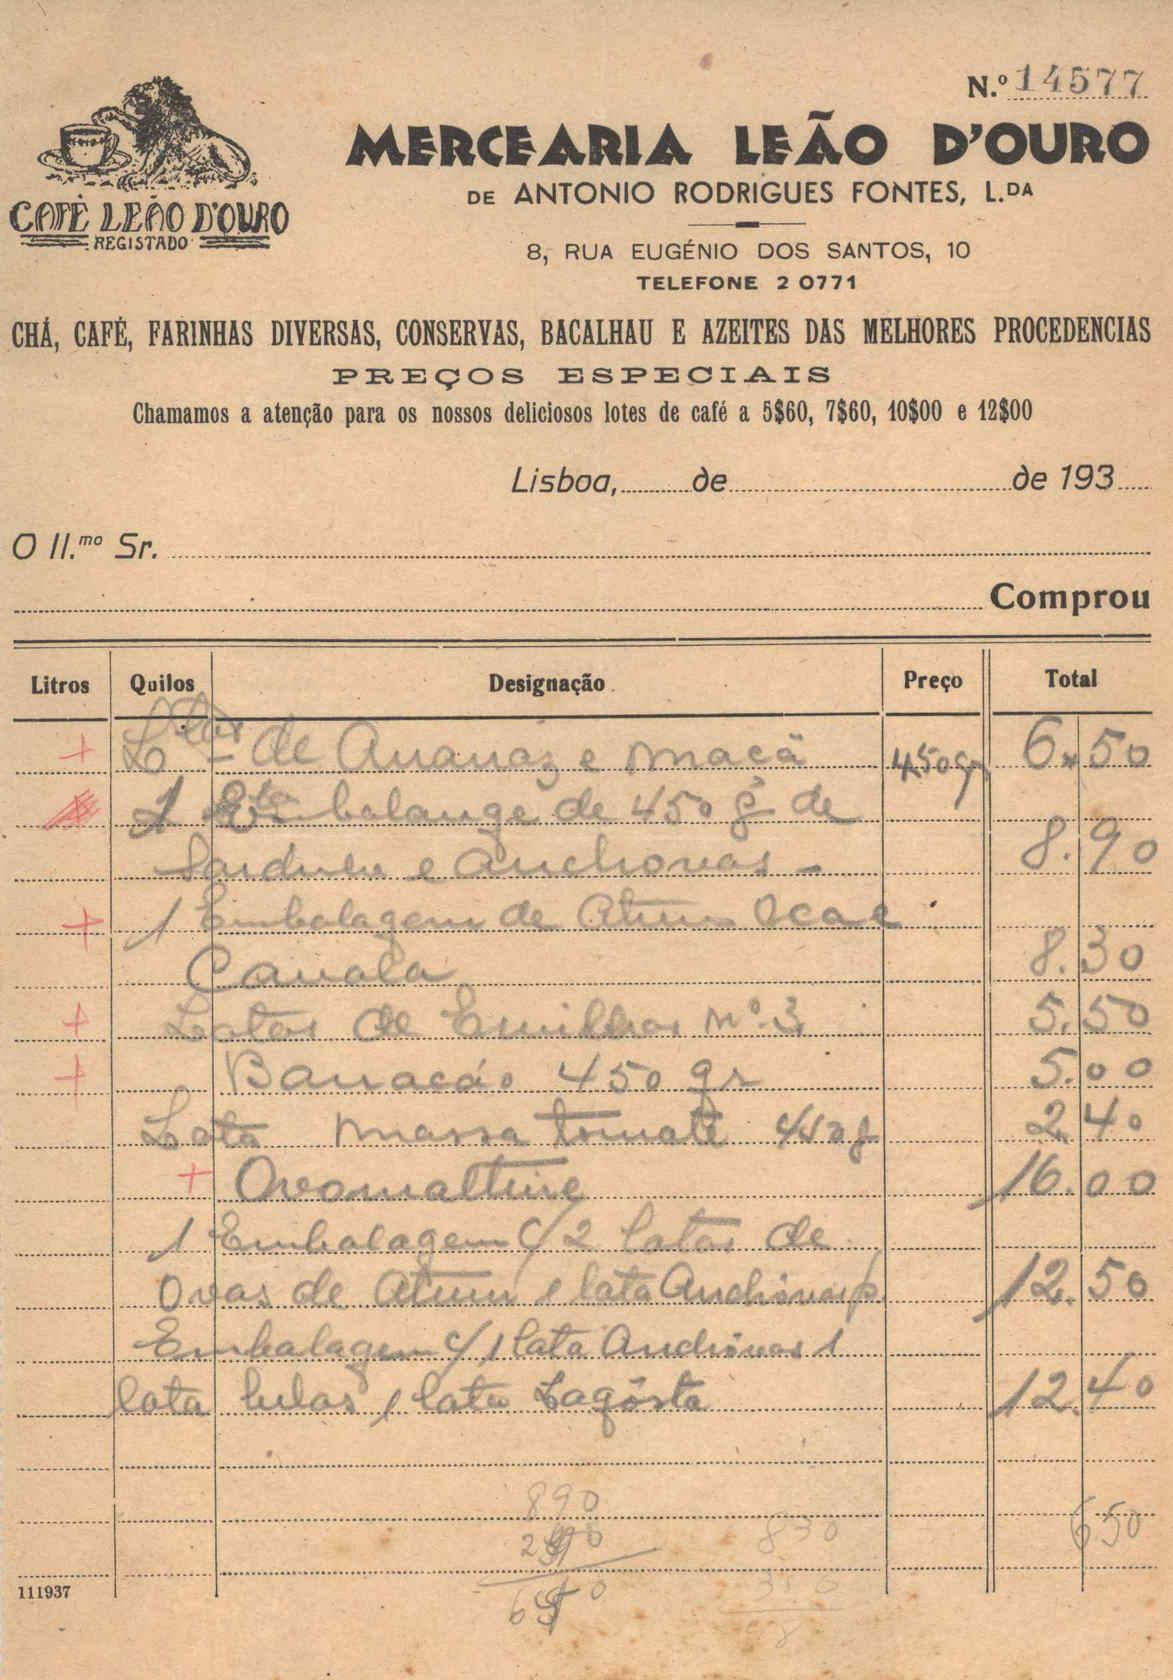 N.º 14577
MERCEARIA LEÃO D'OURO
DE ANTONIO RODRIGUES FONTES, L.DA
CAFÉ LEÃO D'OURO
REGISTADO
8, RUA EUGÉNIO DOS SANTOS, 10
TELEFONE 2 0771
CHÁ, CAFÉ, FARINHAS DIVERSAS, CONSERVAS, BACALHAU E AZEITES DAS MELHORES PROCEDENCIAS
PREÇOS ESPECIAIS
Chamamos a atenção para os nossos deliciosos lotes de café a 5$60, 7$60, 10$00 e 12$00
Lisboa, de de 193
O Il.mo Sr.
Comprou
Litros Quilos Designação Preço Total
+ de Ananaz e maçã 450 gr 6.50
1 de 450 g de
e Anchovas - 8.90
+ 1 Embalagem de Atum
8.30
+ Latas de nº 3 5.50
+ 450 gr 5.00
Lata massa tomate 450 g 2.40
+ Ovomaltine 16.00
1 Embalagem c/ 2 latas de
Ovas de Atum 1 lata Anchóvas 12.50
Embalagem c/ 1 lata Anchóvas 1
lata lulas 1 lata Lagósta 12.40
890
830
650
111937